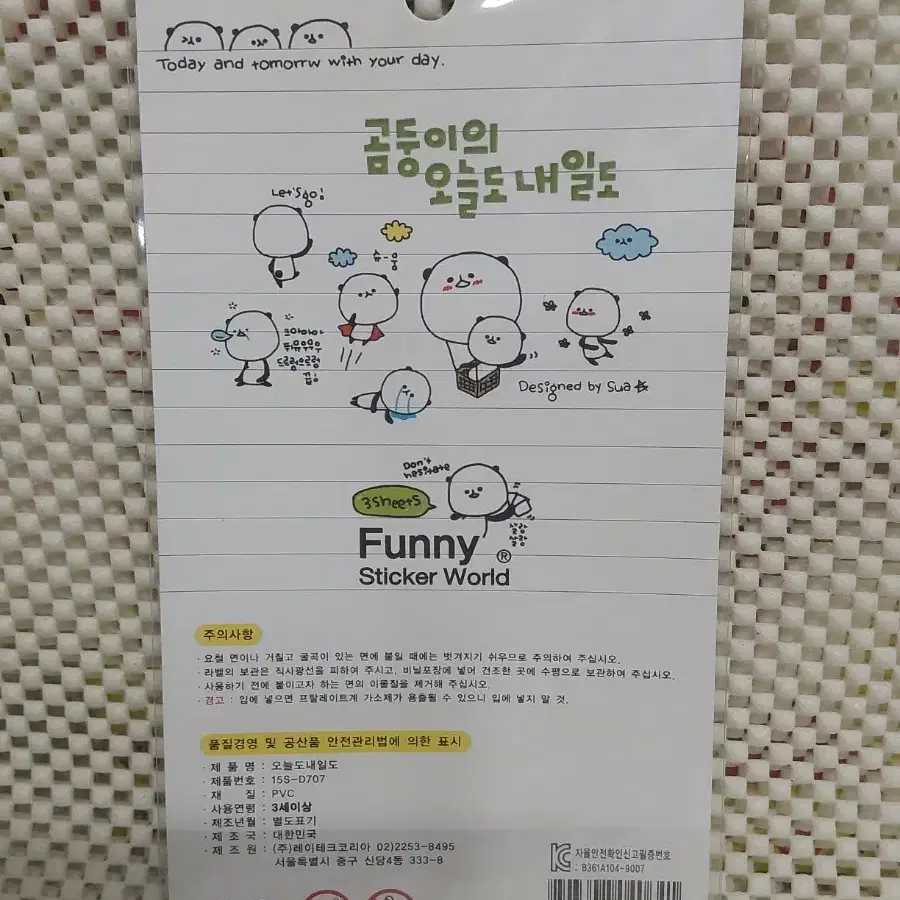 Today and tomorrw with your day.
곰둥이의
오늘도 내일도
Let's 송!
슈-웅
크아아아
퓌유우우우
드르렁으르렁
끕!
Designed by Sua
Don't
hesitate
3sheets
살랑
살랑
Funny ®
Sticker World
주의사항
· 요철 면이나 거칠고 굴곡이 있는 면에 붙일 때에는 벗겨지기 쉬우므로 주의하여 주십시오.
· 라벨의 보관은 직사광선을 피하여 주시고, 비닐포장에 넣어 건조한 곳에 수평으로 보관하여 주십시오.
· 사용하기 전에 붙이고자 하는 면의 이물질을 제거해 주십시오.
· 경고 : 입에 넣으면 프탈레이트계 가소제가 용출될 수 있으니 입에 넣지 말 것.
품질경영 및 공산품 안전관리법에 의한 표시
· 제 품 명 : 오늘도내일도
· 제품번호 : 15S-D707
· 재 질 : PVC
· 사용연령 : 3세이상
· 제조년월 : 별도표기
· 제 조 국 : 대한민국
· 제 조 원 : (주)레이테크코리아 02)2253-8495
서울특별시 중구 신당4동 333-8
자율안전확인신고필증번호
: B361A104-9007